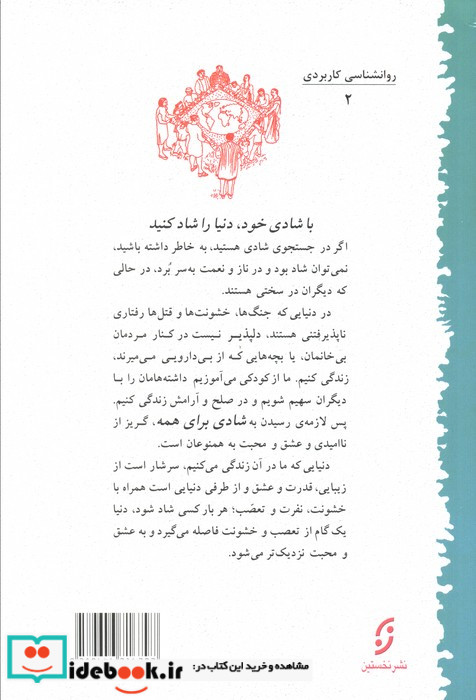 روانشناسی کاربردی
۲
با شادی خود، دنیا را شاد کنید
اگر در جستجوی شادی هستید، به خاطر داشته باشید،
نمی‌توان شاد بود و در ناز و نعمت به‌سر بُرد، در حالی
که دیگران در سختی هستند.
در دنیایی که جنگ‌ها، خشونت‌ها و قتل‌ها رفتاری
ناپذیرفتنی هستند، دلپذیر نیست در کنار مردمان
بی‌خانمان، یا بچه‌هایی که از بی‌دارویی می‌میرند،
زندگی کنیم. ما از کودکی می‌آموزیم داشته‌هامان را با
دیگران سهیم شویم و در صلح و آرامش زندگی کنیم.
پس لازمه‌ی رسیدن به شادی برای همه، گریز از
ناامیدی و عشق و محبت به همنوعان است.
دنیایی که ما در آن زندگی می‌کنیم، سرشار است از
زیبایی، قدرت و عشق و از طرفی دنیایی است همراه با
خشونت، نفرت و تعصّب؛ هر بار کسی شاد شود، دنیا
یک گام از تعصب و خشونت فاصله می‌گیرد و به عشق
و محبت نزدیک‌تر می‌شود.
نشر نخستین
مشاهده و خرید این کتاب در:
iidebook.ir